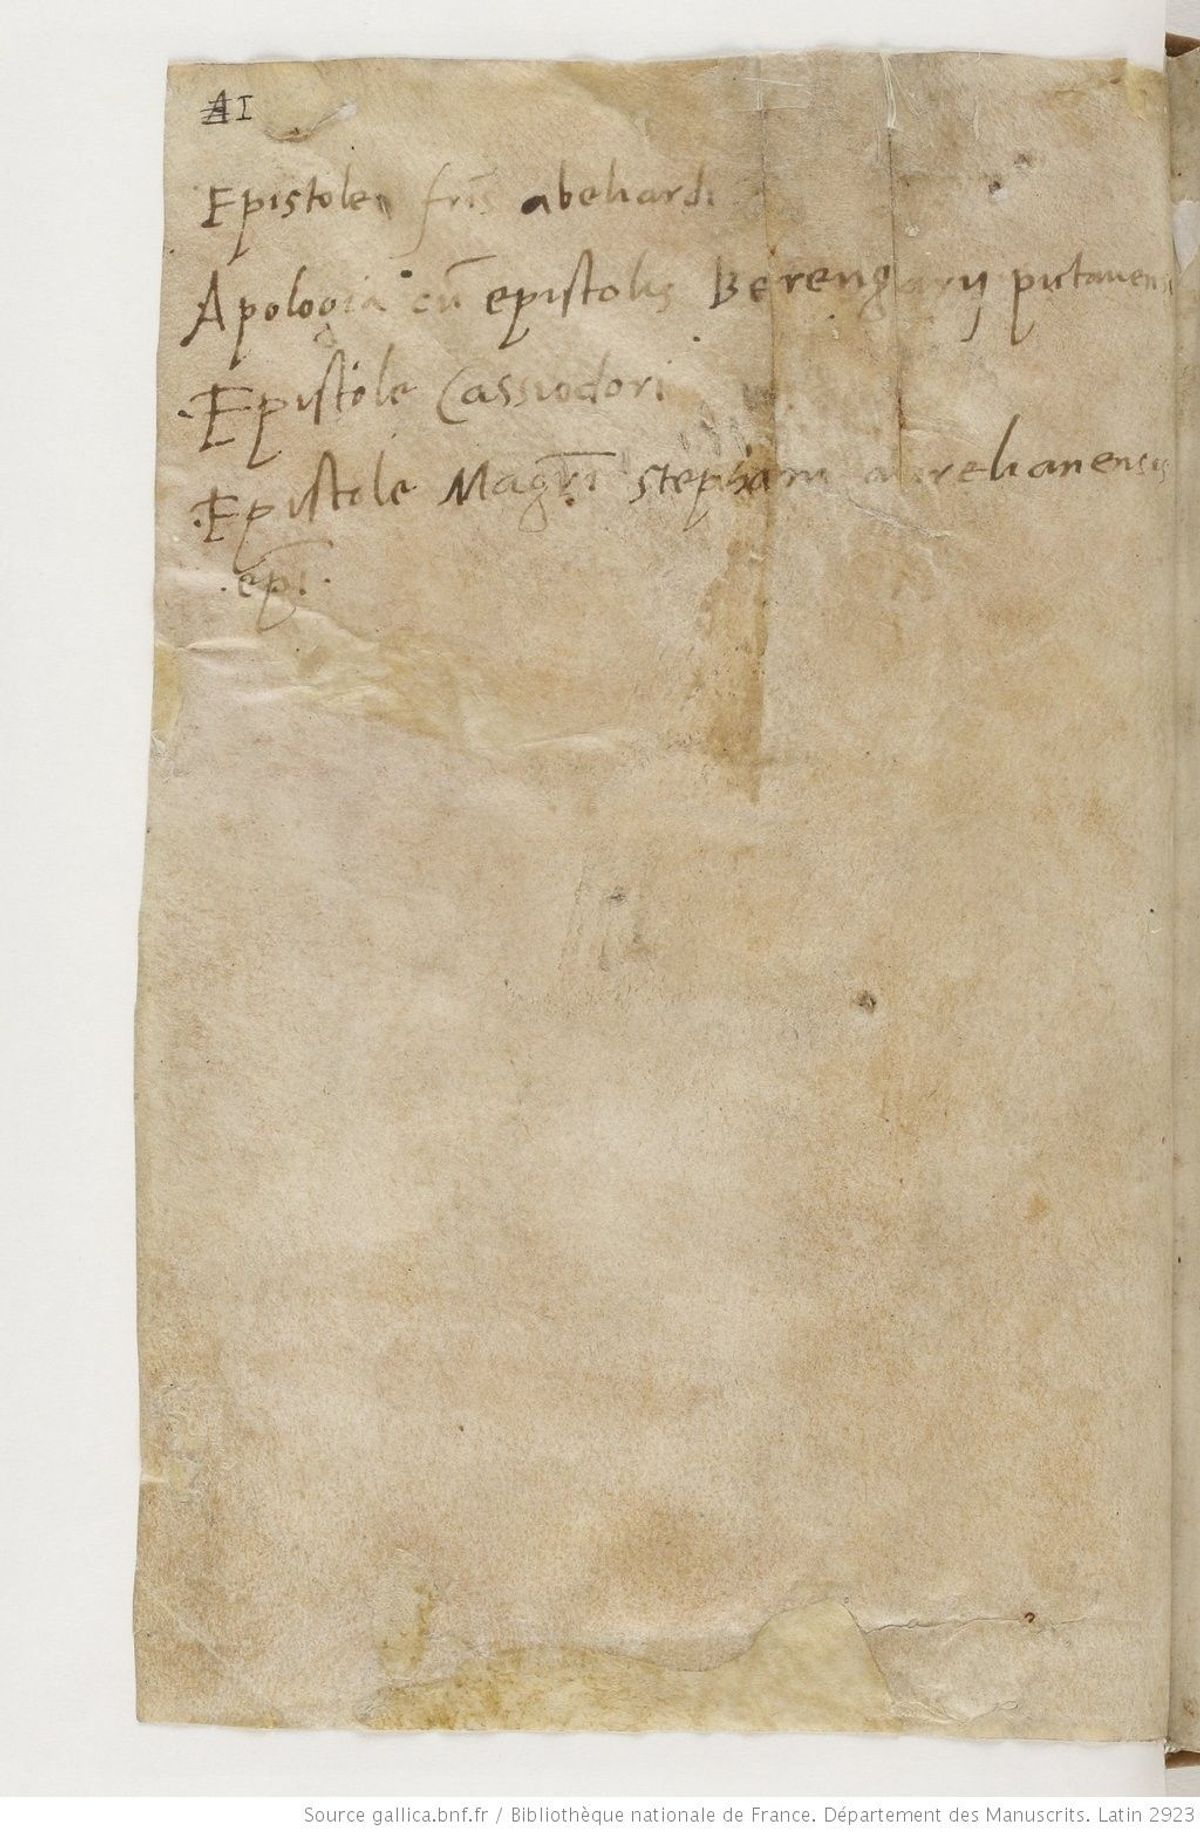 A I
Epistole fr̄is abeliardi
Apologia cū epistolis Berengarij pictauens
Epistole Cassiodori
Epistole Magr̄i stephani aurelianensis
ep̄i
Source gallica.bnf.fr / Bibliothèque nationale de France. Département des Manuscrits. Latin 2923